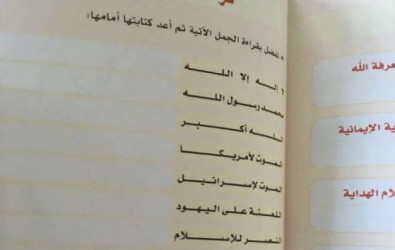 • تفضل بقراءة الجمل الآتية ثم أعد كتابتها أمامها:
لا إلـه إلا اللـه
محمـد رسـول اللـه
اللـه أكـبـر
المـوت لأمريكـا
المـوت لإسـرائيـل
اللعنـة علـى اليهـود
النصـر للإسـلام
رفة الله
ية الإيمانية
لام الهداية